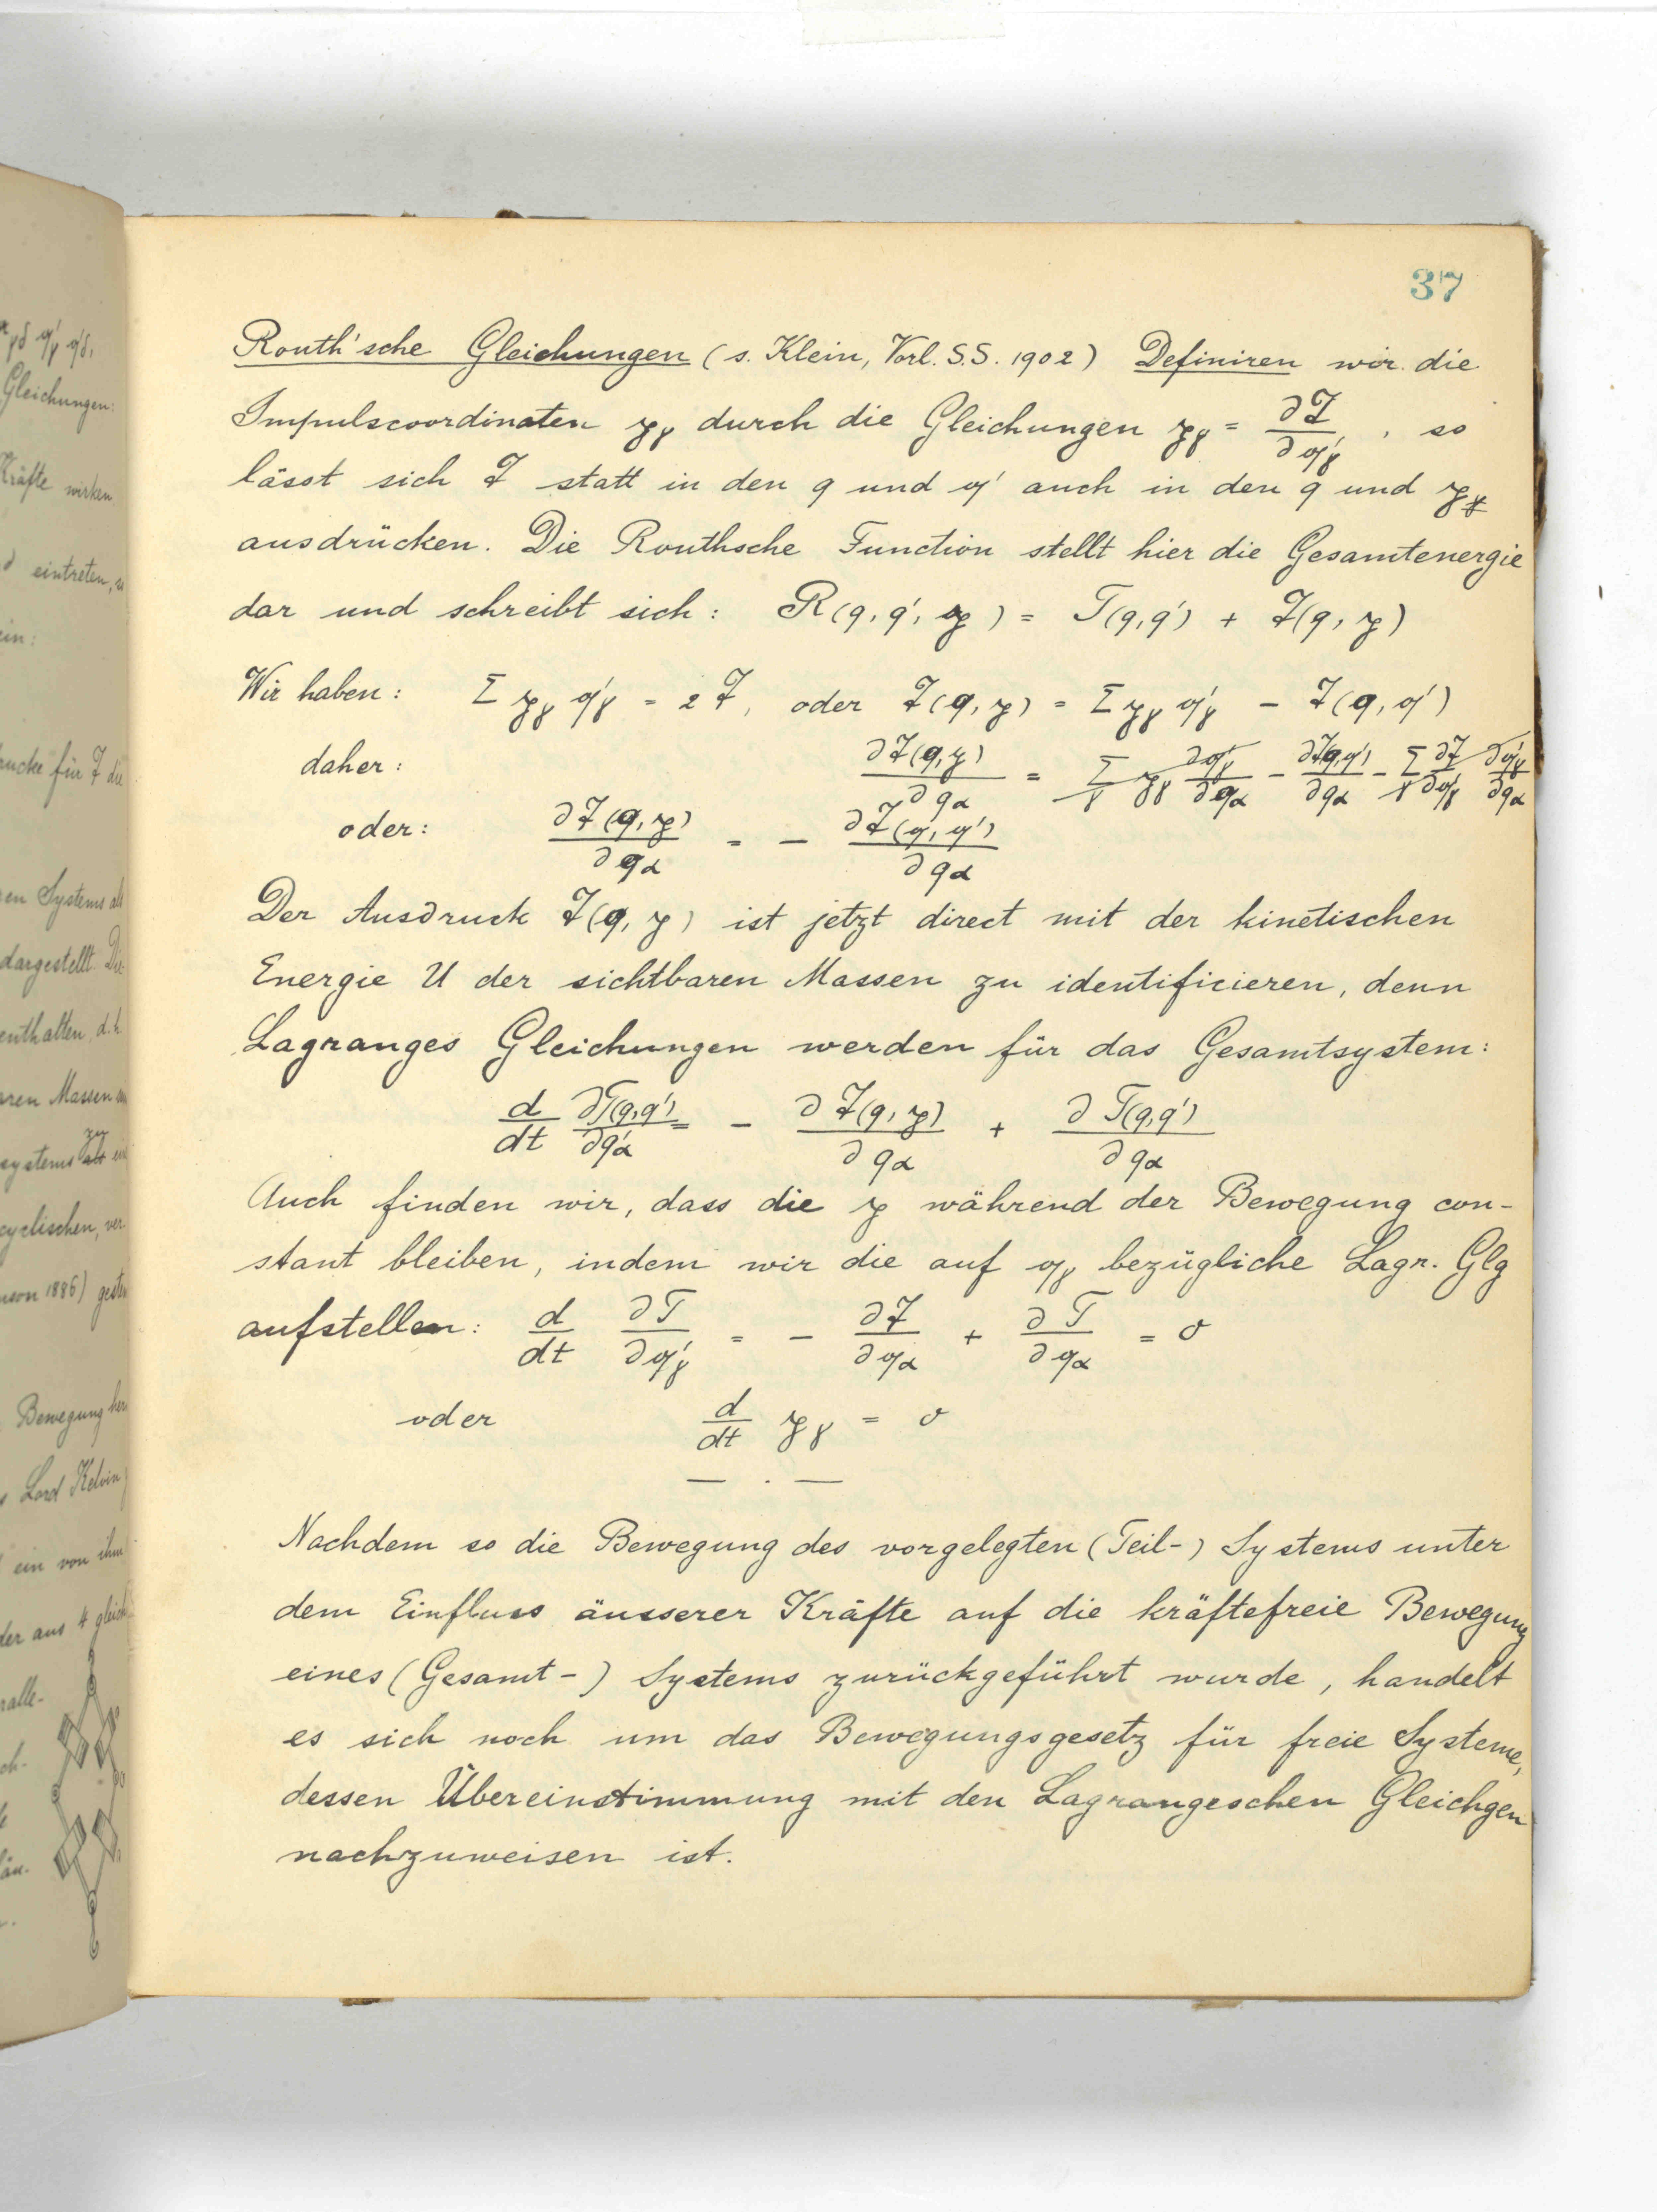 37
Routh'sche Gleichungen (s. Klein, Vorl. S.S. 1902) Definiren wir die
Impulscoordinaten 𝔭ᵧ durch die Gleichungen 𝔭ᵧ = ∂𝔗/∂𝔮'ᵧ, so
lässt sich 𝔗 statt in den q und 𝔮' auch in den q und 𝔭ᵧ
ausdrücken. Die Routhsche Function stellt hier die Gesamtenergie
dar und schreibt sich: R(q, q', 𝔭) = T(q,q') + 𝔗(q, 𝔭)
Wir haben: Σ 𝔭ᵧ 𝔮'ᵧ = 2 𝔗, oder 𝔗(q, 𝔭) = Σ 𝔭ᵧ 𝔮'ᵧ - 𝔗(q, 𝔮')
daher: ∂𝔗(q,𝔭)/∂qα = Σᵧ 𝔭ᵧ ∂𝔮'ᵧ/∂qα - ∂𝔗(q,𝔮')/∂qα - Σᵧ ∂𝔗/∂𝔮'ᵧ ∂𝔮'ᵧ/∂qα
oder: ∂𝔗(q, 𝔭)/∂qα = - ∂𝔗(q, 𝔮')/∂qα
Der Ausdruck 𝔗(q, 𝔭) ist jetzt direct mit der kinetischen
Energie U der sichtbaren Massen zu identificieren, denn
Lagranges Gleichungen werden für das Gesamtsystem:
d/dt ∂T(q,q')/∂q'α = - ∂𝔗(q, 𝔭)/∂qα + ∂T(q,q')/∂qα
Auch finden wir, dass die 𝔭 während der Bewegung con-
stant bleiben, indem wir die auf 𝔮ᵧ bezügliche Lagr. Glg
aufstellen: d/dt ∂T/∂𝔮'ᵧ = - ∂𝔗/∂𝔮α + ∂T/∂𝔮α = 0
oder d/dt 𝔭ᵧ = 0
— . —
Nachdem so die Bewegung des vorgelegten (Teil-) Systems unter
dem Einfluss äusserer Kräfte auf die kräftefreie Bewegung
eines (Gesamt-) Systems zurückgeführt wurde, handelt
es sich noch um das Bewegungsgesetz für freie Systeme,
dessen Übereinstimmung mit den Lagrangeschen Gleichgen
nachzuweisen ist.